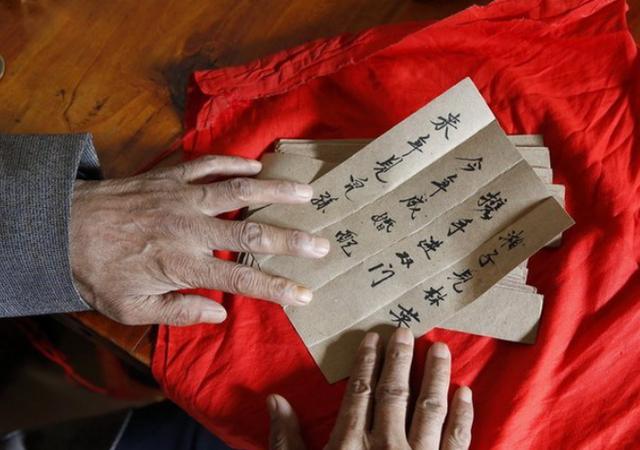 子见林英
携手进双门
今年成婚配
来年见儿孙